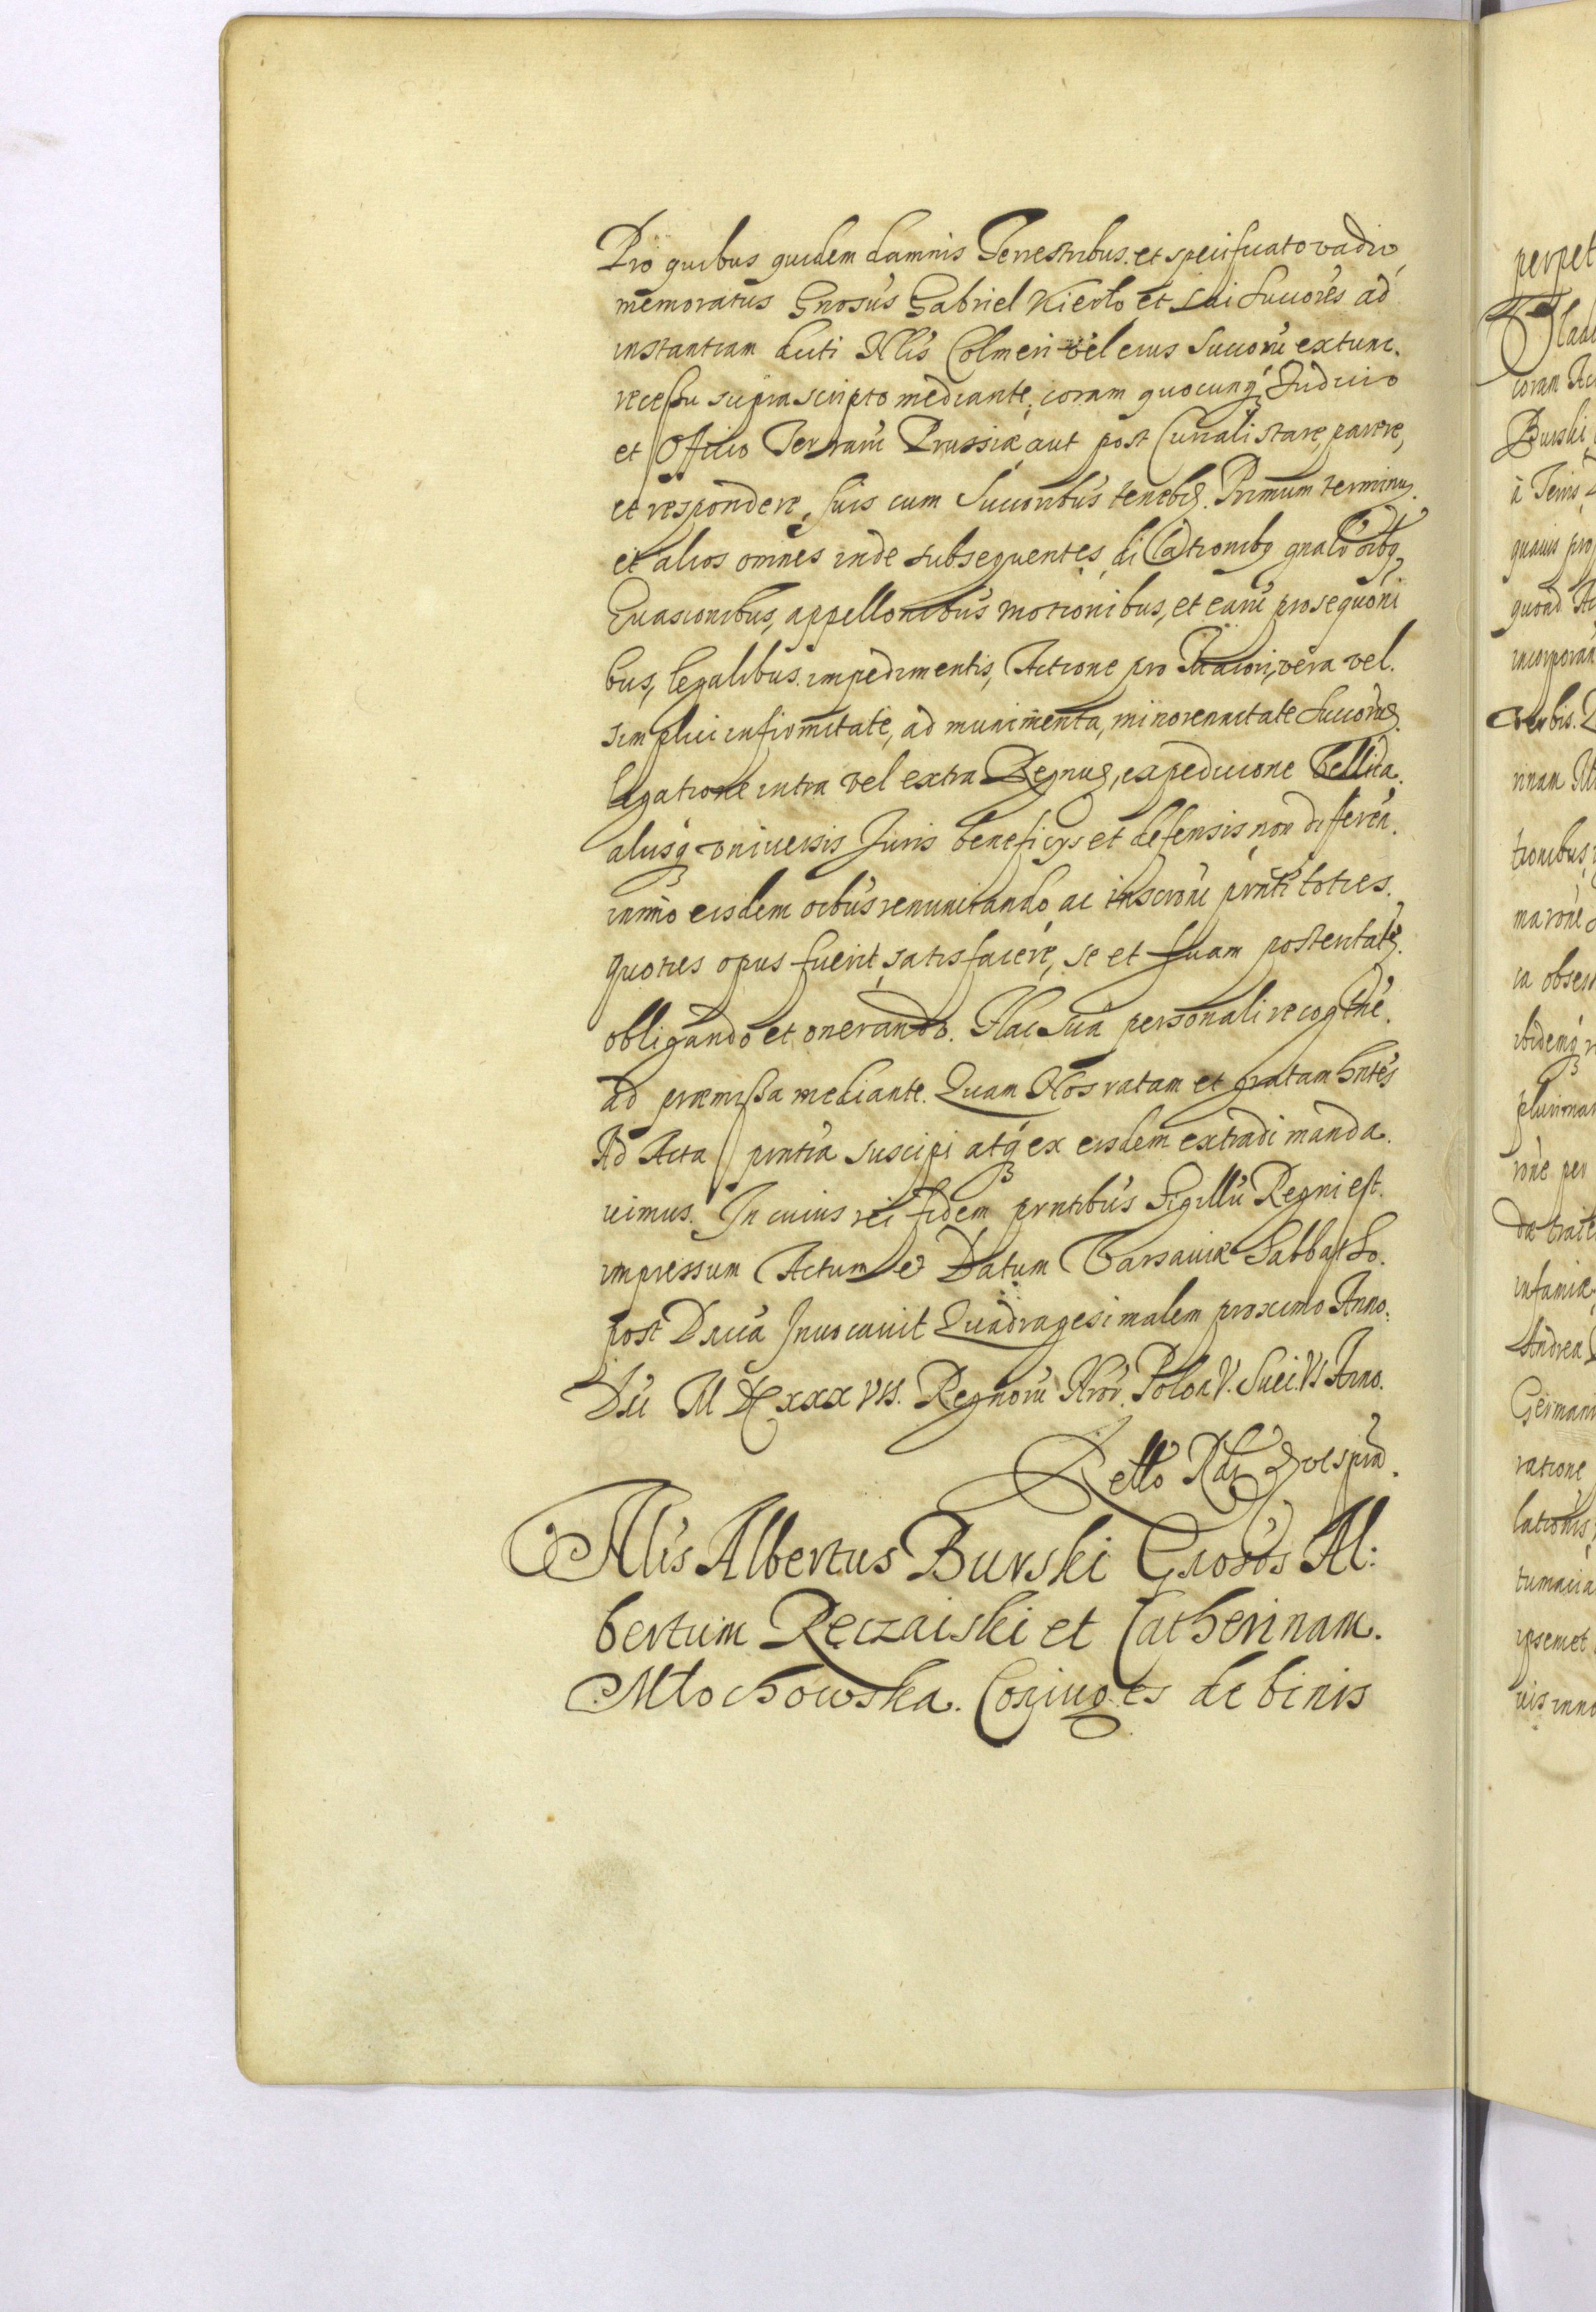 Pro quibus quidem damnis Terrestribus et specificato vadio
memoratus Gnosús Gabriel Kierło et sui Succores ad
instantiam dicti Nlis Colmeri vel eius Succorú extunc.
recessu suprascripto mediante, coram quocunq Judicio
et Officio Terrarú Prussiæ aut post Curiali stare, parere,
et respondere, suis cum Succoribús teneb. Primum terminu
et alios omnes inde subsequentes dilationibq gnalibq
Evasionibus, appellonibús motionibus, et earú prosequóni
bus, legalibus impedimentis, Actione pro maiori, vera vel.
simplici infirmitate, ad munimenta, minorennitate Succorú
legatione intra vel extra Regnu, expedicione bellica.
aliisq universis Juris beneficys et defensis non differén.
immo eisdem oibús renunciando, ac inscroni pnti toties.
quoties opus fuerit satisfacere, se et suam posteritate.
obligando et onerando. Hac sua personali recogne.
ad præmissa mediante. Quam Nos ratam et gratam hntes
Ad Acta pntia suscipi atq ex eisdem extradi manda.
vimus. In cuius rei fidem pntibus Sigillú Regni est.
impressum Actum et Datum Varsaviæ Sabbatho.
post Dnicá Invocavit Quadragesimalem proximo Anno.
Dni M DC xxx VII. Regnorú Nror. Polon V. Sueci. VI Anno.
Rello
Nlis Albertus Burski Gnosos Al:
bertum Ręczaiski et Catherinam.
Młochowska. Coniuges de binis
perpet
coram Ac
Burski
à Terris
quavis pro
quoad Ac
incorporan
verbis.
tionibus
ca obser
ibidemq
plurima
róne per
infamiæ
Andrea
German
ratione
lationis
tumacia
ipsemet